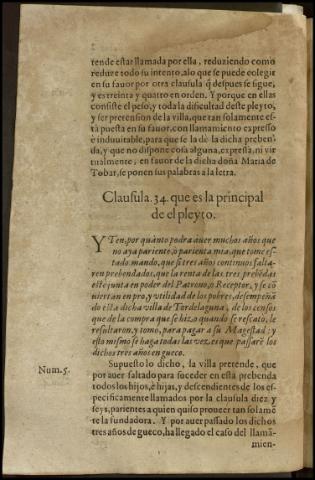 tende estar llamada por ella, reduziendo como
reduze todo su intento, alo que se puede colegir
en su fauor por otra clausula q̃ despues se sigue,
y es treinta y quatro en orden. Y porque en ellas
consiste el peso, y toda la dificultad deste pleyto,
y ser pretension de la villa, que tan solamente es-
tà puesta en su fauor, con llamamiento expresso
è induuitable, para que se la dè la dicha preben-
da, y que no dispone cosa alguna, expressa, ni vir
tualmente, en fauor de la dicha doña Maria de
Tobar, se ponen sus palabras a la letra.
Clausula. 34. que es la principal
de el pleyto.
Y Ten, por quãnto podra auer muchos años que
no aya pariente, o parienta mia, que tome es-
tado. mando, que si tres años continuos falta-
ren prebendados, que la renta de las tres prebẽdas
estè junta en poder del Patrono, o Receptor, y se cõ
uiertan en pro, y vtilidad de los pobres, desempeñã
do esta dicha villa de Tordelaguna, de los censos
que de la compra que se hizo, quando se rescato, le
resultaron, y tomo, para pagar a su Magestad: y
esto mismo se haga todas las vezes que passarẽ los
dichos tres años en gueco.
Num. 5.
Supuesto lo dicho, la villa pretende, que
por auer faltado para suceder en esta prebenda
todos los hijos, è hijas, y descendientes de los es-
pecificamente llamados por la clausula diez y
seys, parientes a quien quiso proueer tan solamẽ
te la fundadora. Y por auer passado los dichos
tres años de gueco, ha llegado el caso del llamã-
mien-